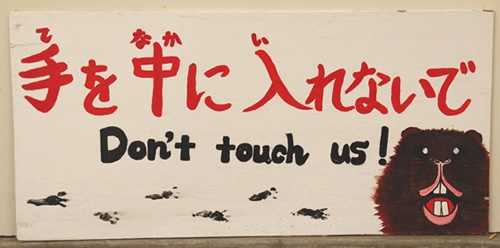 て なか い
手を中に入れないで
Don't touch us!